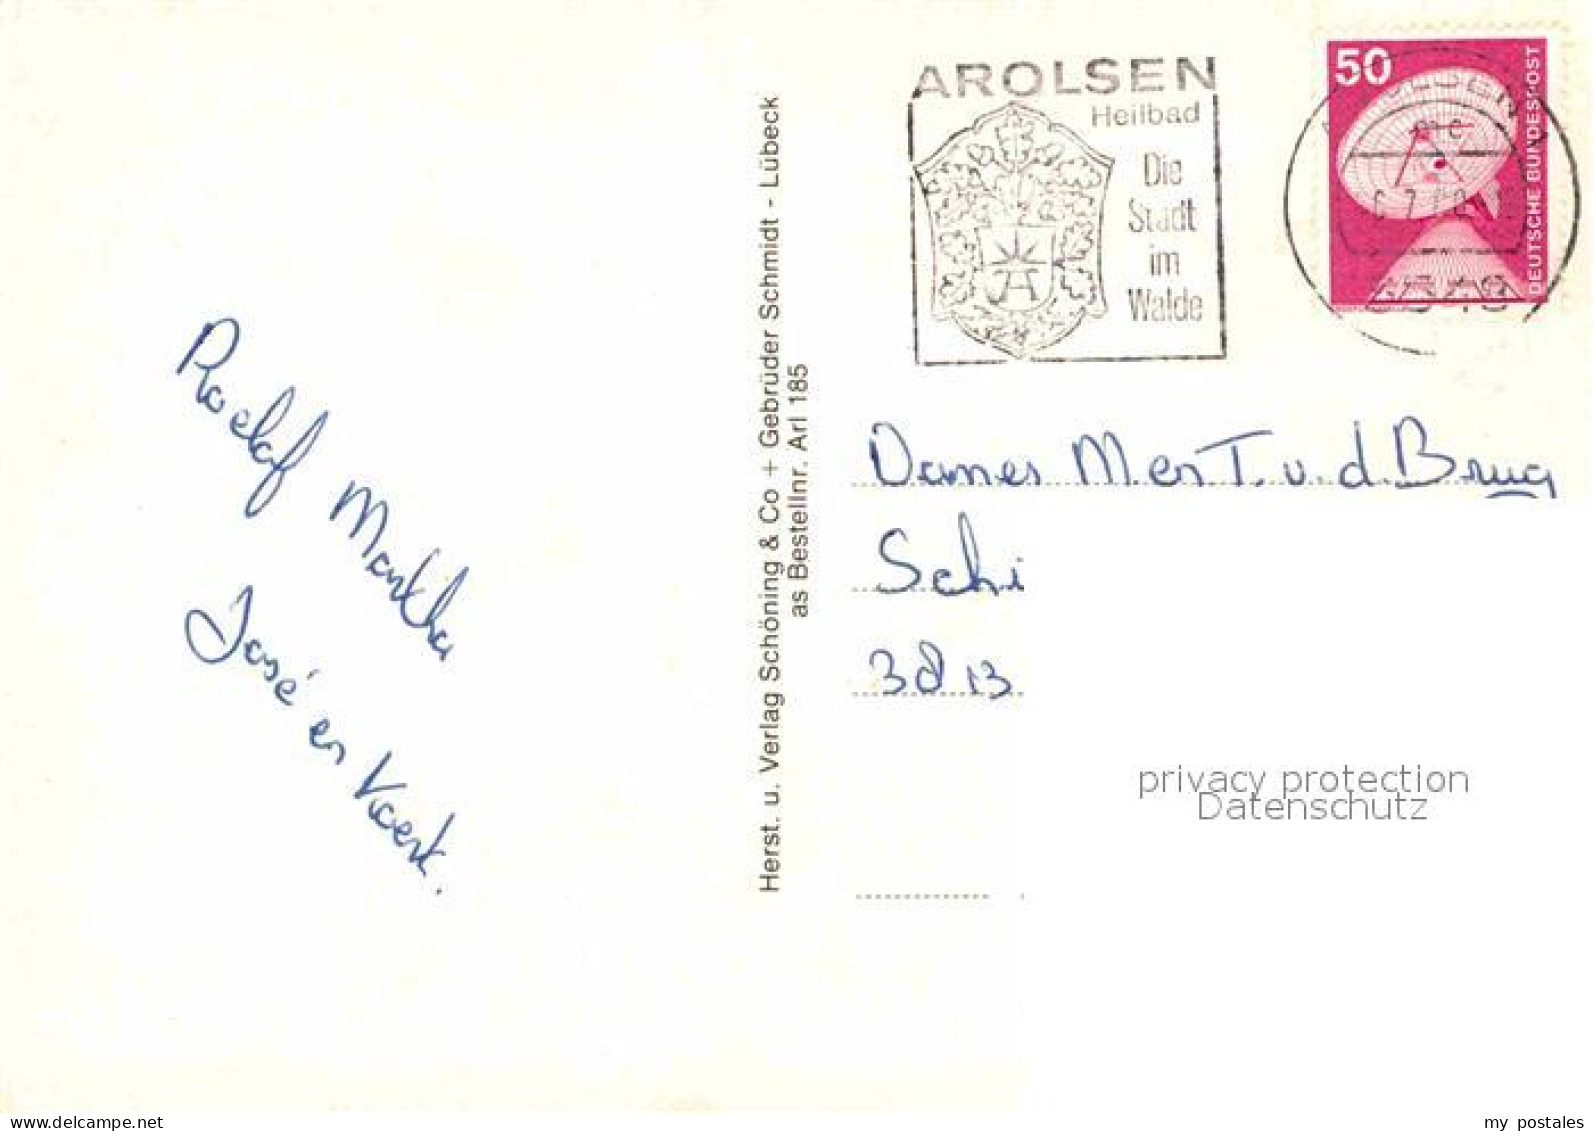 Roelof Martha
José en Koert.
Herst. u. Verlag Schöning & Co + Gebrüder Schmidt - Lübeck
as Bestellnr. Arl 185
AROLSEN
Heilbad
Die
Stadt
im
Walde
50
DEUTSCHE BUNDESPOST
Dames M. en T. v. d. Brug
Schi
3813
privacy protection
Datenschutz
my postales